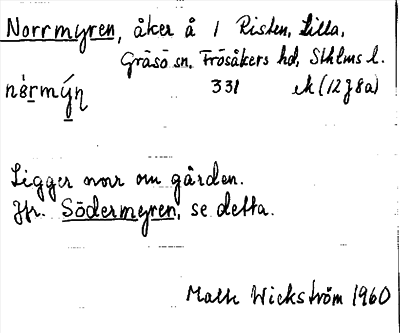 Norrmyren, åker å 1 Risten, Lilla,
Gräsö sn. Frösåkers hd, Sthlms l.
331 ek (12 J 8a)
Ligger norr om gården.
Jfr. Södermyren, se detta.
Wickström 1960